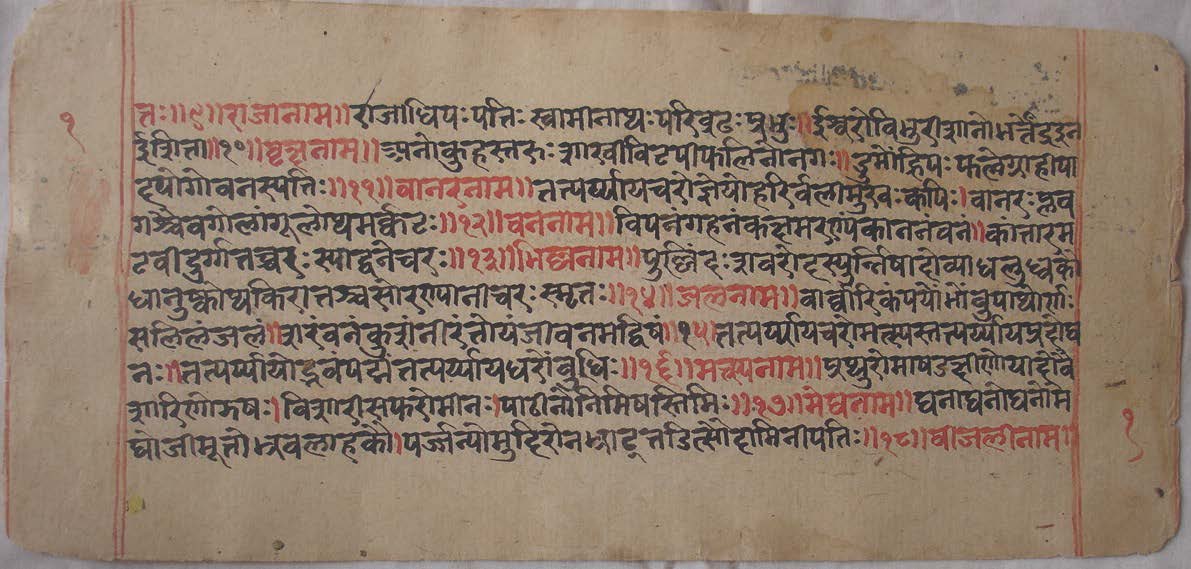 तः॥९॥राजानाम॥राजाधिपःपतिःस्वामीनाथःपरिवृटःप्रभुः॥ईश्वरोविभुरीशानोभर्त्तेंद्रइन
ईशिता॥१०॥वृक्षनाम॥अनोकुहस्तरुःशाखीविटपीफलिनोनगः॥द्रुमोंह्रिपःफलेग्राहीपा
दपोगोवनस्पतिः॥११॥वानरनाम॥तत्पर्य्यायचरोज्ञेयोहरिर्वलीमुखःकपिः।वानरःप्लव
गश्चैवगोलांगूलोथमर्क्कटः॥१२॥वननाम॥विपनंगहनंकक्षमरण्यंकाननंवनं॥कांतारम
टवीदुर्गंतच्चरःस्याद्वनेचरः॥१३॥भिल्लनाम॥पुलिंदःशवरोदस्युर्न्निषादोव्याधलुब्धकौ
धानुष्कोथकिरातश्चसोरण्यानीचरःस्मृतः॥१४॥जलनाम॥वार्व्वारिकंपयोंभोंबुपाथोर्णः
सलिलंजलं॥शरंवनंकुशंनीरंतोयंजीवनमद्विषं॥१५॥तत्पर्य्यायचरोमत्स्यस्तत्पर्य्यायप्रदोघ
नः॥तत्पर्य्यायोद्भवंपद्मंतत्पर्य्यायधरोंबुधिः॥१६॥मत्स्यनाम॥पृथुरोमाषडक्षीणोयादोवै
शारिणोझषः।विशारीसफरोमीनःपाठीनोनिमिषस्तिमिः॥१७॥मेघनाम॥घनाघनोघनोमे
घोजीमूतोभ्रंवलाहकौ॥पर्जन्योमुदिरोनभ्राट्तडित्सौदामिनीपतिः॥१८॥वीजलीनाम॥
१
१